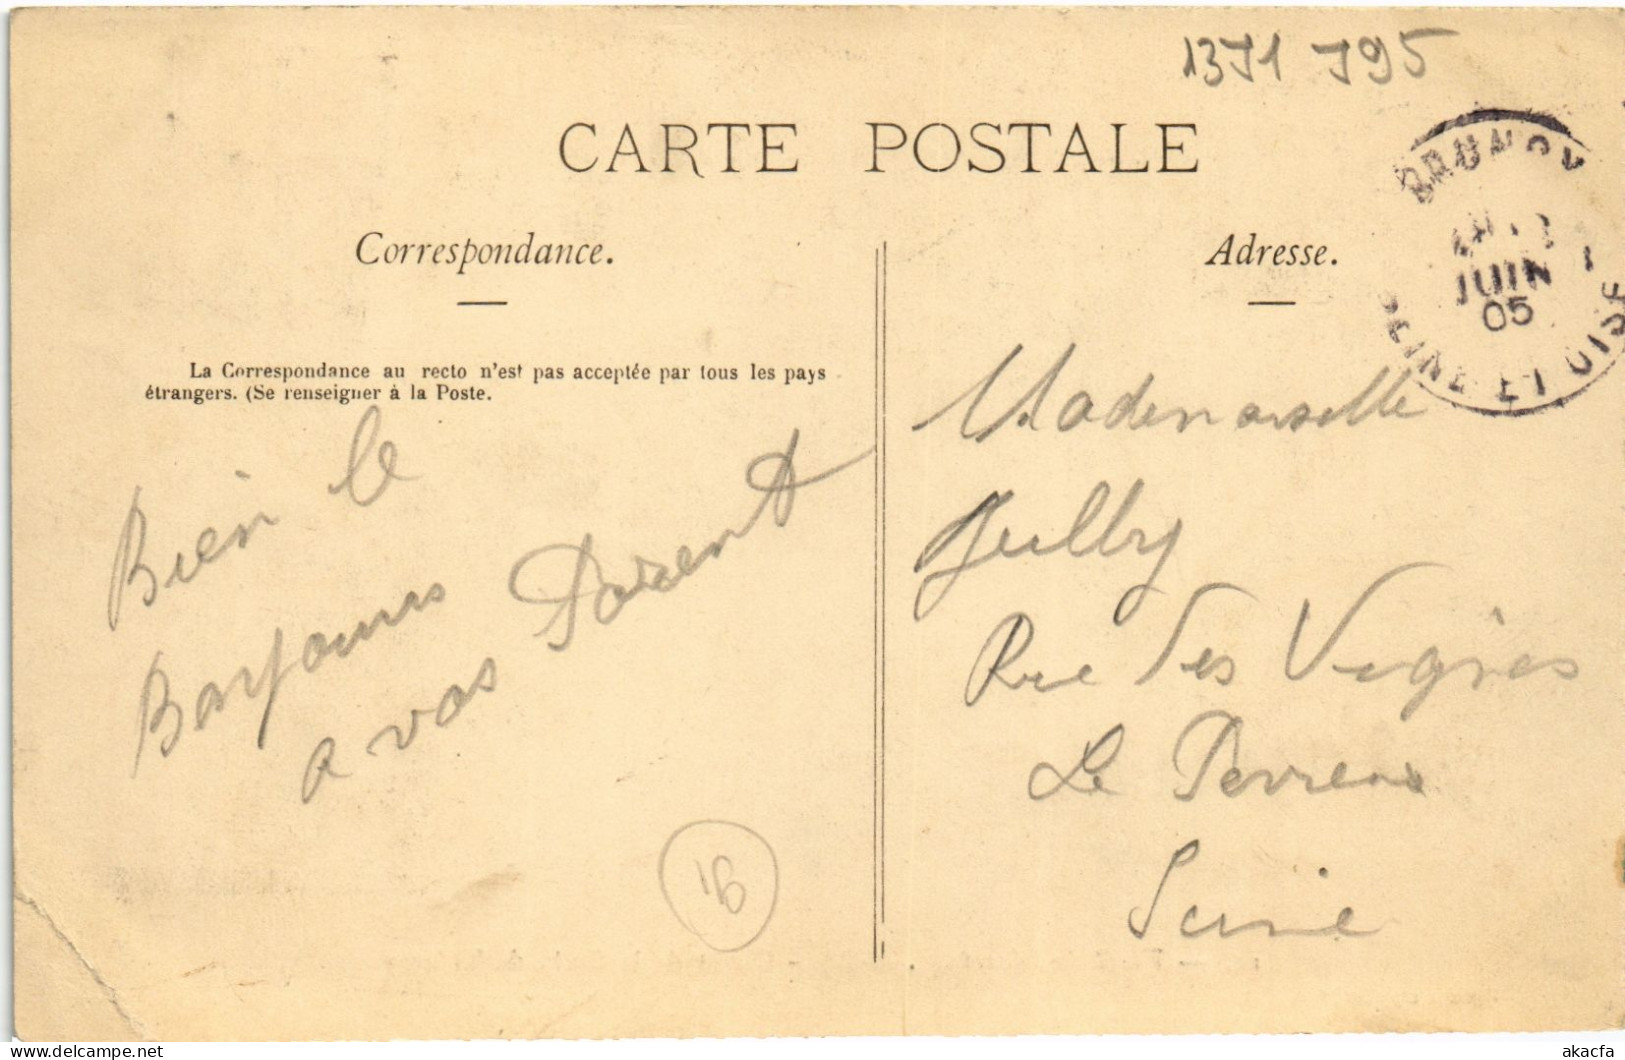 1371 795
CARTE POSTALE
Correspondance.
Adresse.
BRUNOY
JUIN
05
SEINE ET OISE
La Correspondance au recto n'est pas acceptée par tous les pays
étrangers. (Se renseigner à la Poste.
Bien le
Bonjours
a vos Parent
Mademoiselle
Jullly
Rue Des Vignes
Le Perreux
Seine
akacfa